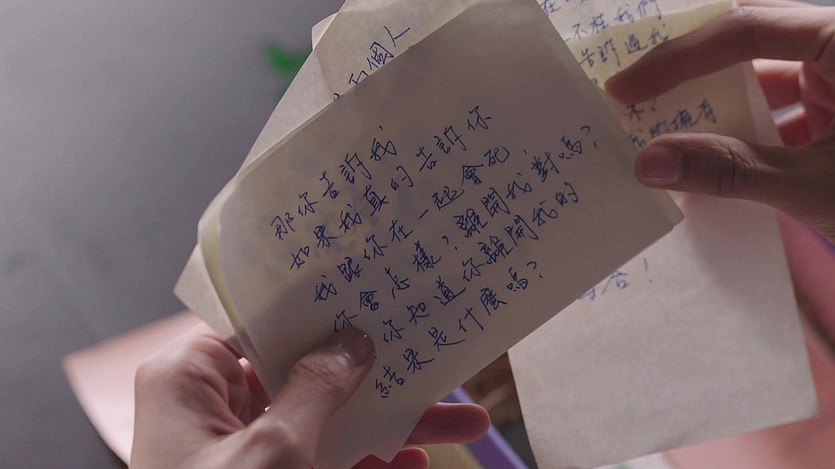 個人
那你告訴我
如果我真的告訴你
我跟你在一起會死，
你會怎樣？離開我對嗎？
你知道你離開我的
結果是什麼嗎？
我們
告訴過我
擁有
！